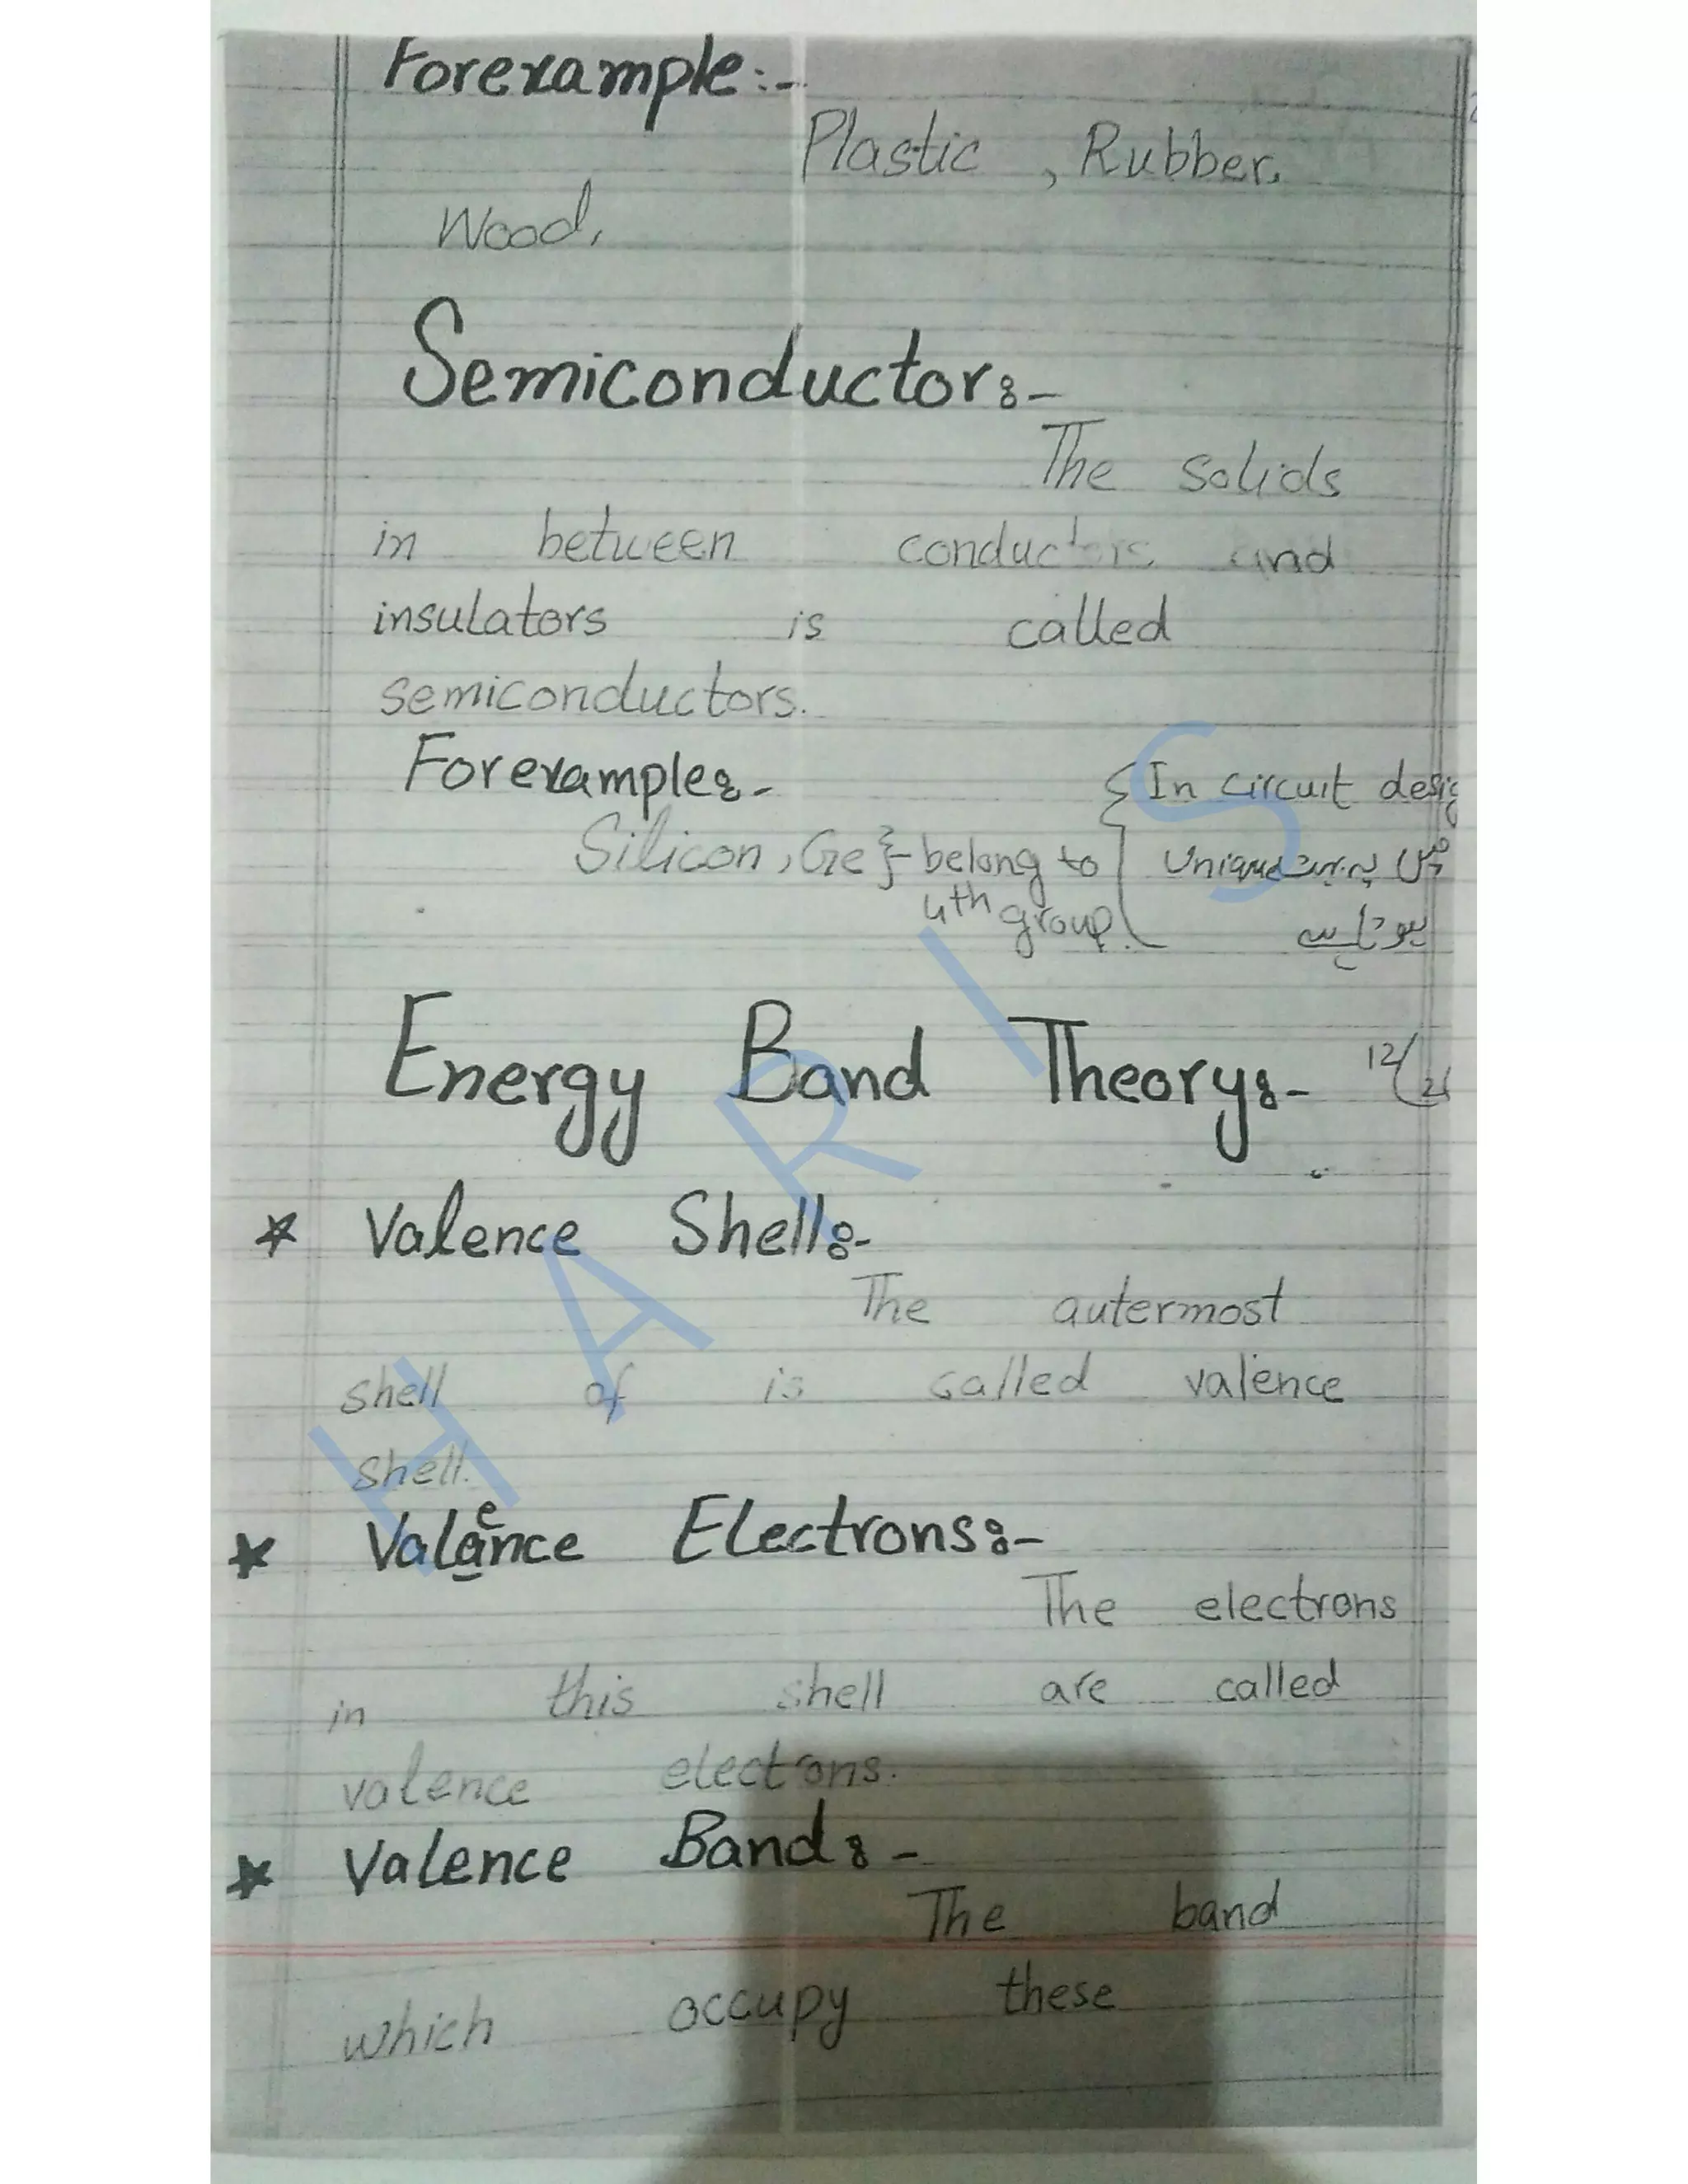 Forexample:-
Plastic, Rubber,
Wood,
Semiconductor:-
The solids
in between conductors and
insulators is called
semiconductors.
Forexample:-
{In circuit desig
Silicon, Ge}-belong to
4th group.
Unique بہت یہ میں
ہوتا ہے
Energy Band Theory:- 12/
* Valence Shell:-
The autermost
shell of is called valence
shell.
e
* Valance Electrons:-
The electrons
in this shell are called
valence electrons.
* Valence Band:-
The band
which occupy these
HARIS